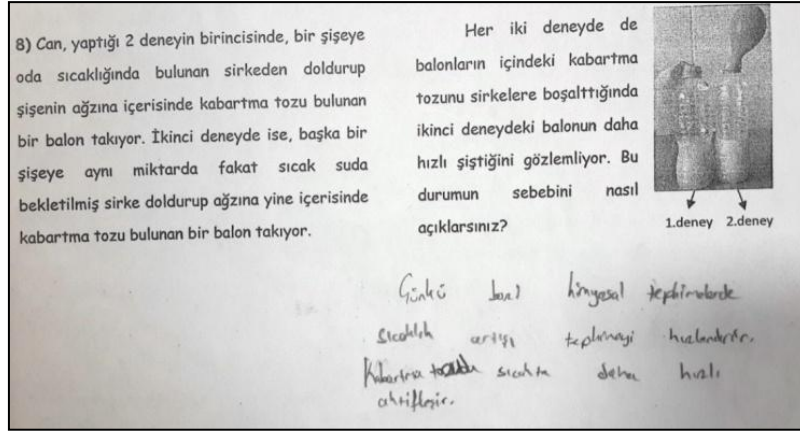 8) Can, yaptığı 2 deneyin birincisinde, bir şişeye
oda sıcaklığında bulunan sirkeden doldurup
şişenin ağzına içerisinde kabartma tozu bulunan
bir balon takıyor. İkinci deneyde ise, başka bir
şişeye aynı miktarda fakat sıcak suda
bekletilmiş sirke doldurup ağzına yine içerisinde
kabartma tozu bulunan bir balon takıyor.
Her iki deneyde de
balonların içindeki kabartma
tozunu sirkelere boşalttığında
ikinci deneydeki balonun daha
hızlı şiştiğini gözlemliyor. Bu
durumun sebebini nasıl
açıklarsınız?
1.deney 2.deney
Çünkü bazı kimyasal tepkimelerde
sıcaklık artışı tepkimeyi hızlandırır.
Kabartma sıcakta daha hızlı
aktifleşir.